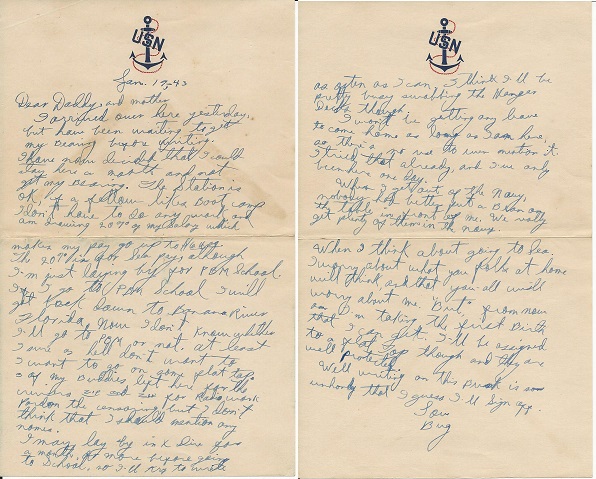 USN
Jan. 17-43
Dear Daddy, and mother
I arrived over here yesterday.
but have been waiting to get
my bearing before writing.
I have now decided that I could
stay here a month and not
get my bearing. The Station is
OK, if a fellow likes Boot camp
I don't have to do any work, and
am drawing 20% of my salary which
makes my pay go up to
The 20% is for Sea pay, although
I'm just laying by for PBM School.
If I go to PBM School I will
get back down to Banana River
Florida. Now I don't know whether
I'll go to PBM or not. at least
I sure as hell don't want to
I want to go on some flat top.
of my Buddies left here for the
for work
Pardon the censoring but I don't
think that I should mention any
names.
I may lay by in here for
a month or more before going
to School, so I'll try to write
USN
as often as I can, I think I'll be
pretty busy swabbing the Hanger
Deck though.
I won't be getting any leave
to come home as long as I am here,
so there's no use to even mention it.
I tried that already, and I've only
been here one day.
When I get out of the Navy,
nobody had better put a Bean on
the table in front of me. We really
get plenty of them in the navy.
When I think about going to Sea
I worry about what you folks at home
will think, and that you all will
worry about me. But, from now
on I'm taking the first Birth
I can get. I'll be assigned
to a flat top though and they are
well protected.
Well writing on this Bunk is so
unhandy that I guess I'll sign off.
Love
Bug